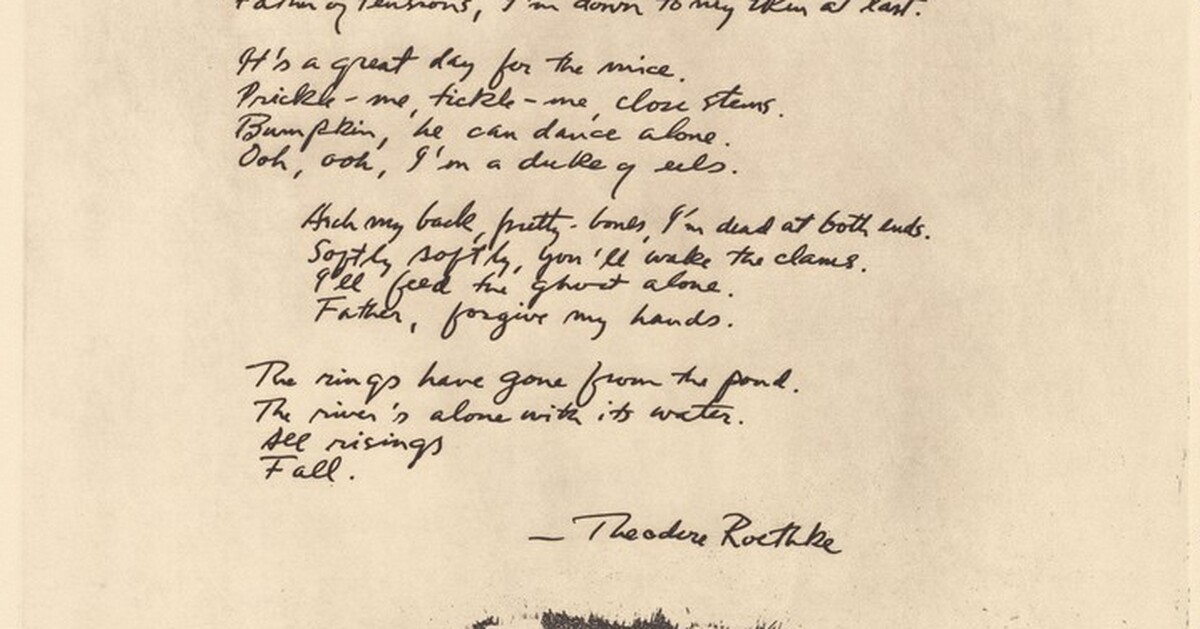 Father of tensions, I'm down to my skin at last.
It's a great day for the mice.
Prickle-me, tickle-me, close stems.
Bumpkin, he can dance alone.
Ooh, ooh, I'm a duke of eels.
Arch my back, pretty-bones, I'm dead at both ends.
Softly softly, you'll wake the clams.
I'll feed the ghost alone.
Father, forgive my hands.
The rings have gone from the pond.
The river's alone with its water.
All risings
Fall.
— Theodore Roethke